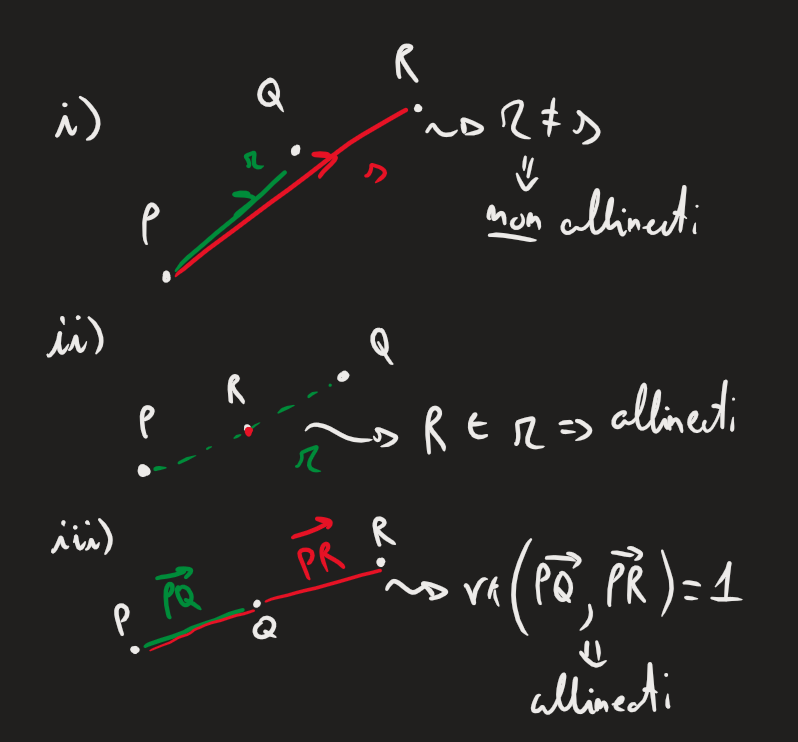 i) P Q R r s ⇝ r ≠ s
⇓
non allineati
ii) P R Q r ⇝ R ∈ r ⇒ allineati
iii) P Q R PQ→ PR→ ⇝ rk(PQ→, PR→) = 1
⇓
allineati